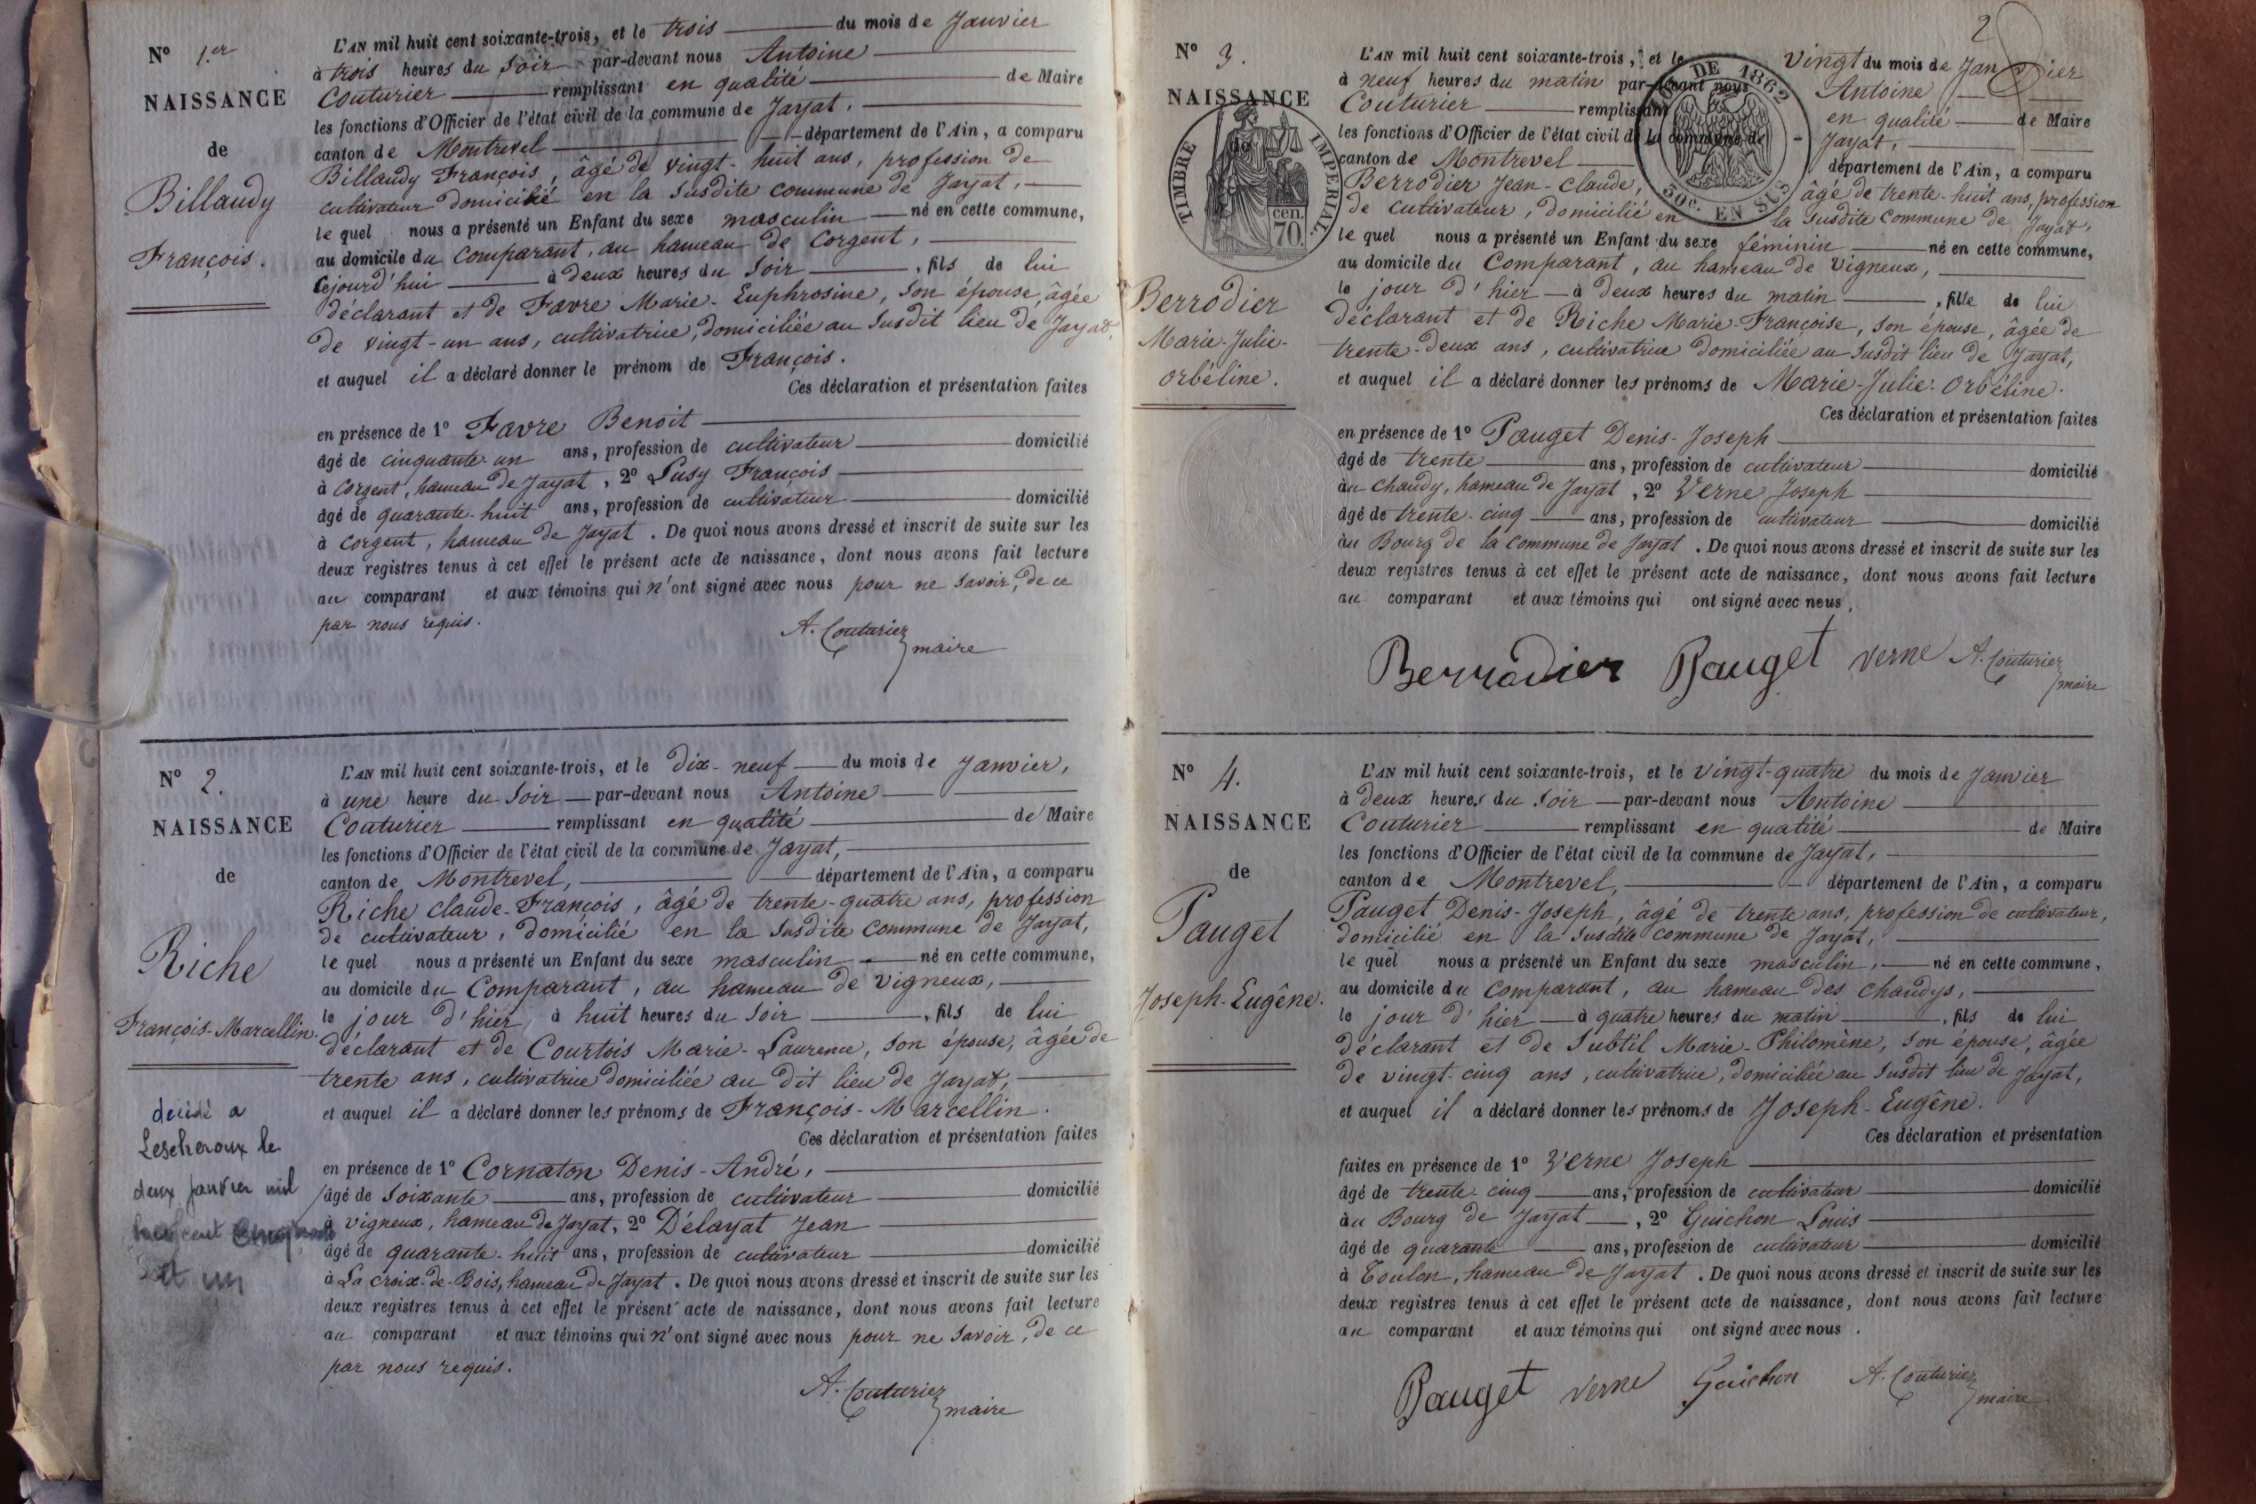 N° 1.er
NAISSANCE
de
Billaudy
François.
L'AN mil huit cent soixante-trois, et le trois du mois de Janvier
à trois heures du Soir par-devant nous Antoine
Couturier remplissant en qualité de Maire
les fonctions d'Officier de l'état civil de la commune de Jayat.
canton de Montrevel département de l'Ain, a comparu
Billaudy François, âgé de vingt-huit ans, profession de
cultivateur domicilié en la susdite commune de Jayat,
le quel nous a présenté un Enfant du sexe masculin né en cette commune,
au domicile du comparant, au hameau de Corgent,
cejourd'hui à deux heures du Soir, fils de lui
déclarant et de Favre Marie-Euphrosine, son épouse, âgée
de vingt-un ans, cultivatrice, domiciliée au susdit lieu de Jayat,
et auquel il a déclaré donner le prénom de François.
Ces déclaration et présentation faites
en présence de 1° Favre Benoit
âgé de cinquante-un ans, profession de cultivateur domicilié
à Corgent, hameau de Jayat, 2° Pusy François
âgé de quarante-huit ans, profession de cultivateur domicilié
à Corgent, hameau de Jayat. De quoi nous avons dressé et inscrit de suite sur les
deux registres tenus à cet effet le présent acte de naissance, dont nous avons fait lecture
au comparant et aux témoins qui n'ont signé avec nous pour ne savoir, de ce
par nous requis.
A. Couturier
maire
N° 2.
NAISSANCE
de
Riche
François-Marcellin.
décédé a
Lescheroux le
deux janvier mil
neuf cent cinquante
et un
L'AN mil huit cent soixante-trois, et le dix-neuf du mois de Janvier,
à une heure du Soir par-devant nous Antoine
Couturier remplissant en qualité de Maire
les fonctions d'Officier de l'état civil de la commune de Jayat,
canton de Montrevel, département de l'Ain, a comparu
Riche Claude-François, âgé de trente-quatre ans, profession
de cultivateur, domicilié en la susdite commune de Jayat,
le quel nous a présenté un Enfant du sexe masculin né en cette commune,
au domicile du Comparant, au hameau de Vigneux,
le jour d'hier, à huit heures du Soir, fils de lui
déclarant et de Courtois Marie-Laurence, son épouse, âgée de
trente ans, cultivatrice domiciliée au dit lieu de Jayat,
et auquel il a déclaré donner les prénoms de François-Marcellin.
Ces déclaration et présentation faites
en présence de 1° Cornaton Denis-André,
âgé de soixante ans, profession de cultivateur domicilié
à Vigneux, hameau de Jayat, 2° Délayat Jean
âgé de quarante-huit ans, profession de cultivateur domicilié
à La croix-de-Bois, hameau de Jayat. De quoi nous avons dressé et inscrit de suite sur les
deux registres tenus à cet effet le présent acte de naissance, dont nous avons fait lecture
au comparant et aux témoins qui n'ont signé avec nous pour ne savoir, de ce
par nous requis.
A. Couturier
maire
2
N° 3.
NAISSANCE
de
TIMBRE IMPERIAL.
cen.
70
Berrodier
Marie-Julie-
orbéline.
DE 1862
50c. EN SUS
L'AN mil huit cent soixante-trois, et le vingt du mois de Janvier
à neuf heures du matin par-devant nous Antoine
Couturier remplissant en qualité de Maire
les fonctions d'Officier de l'état civil de la commune de Jayat,
canton de Montrevel département de l'Ain, a comparu
Berrodier Jean-Claude, âgé de trente-huit ans, profession
de cultivateur, domicilié en la susdite commune de Jayat,
le quel nous a présenté un Enfant du sexe féminin né en cette commune,
au domicile du Comparant, au hameau de Vigneux,
le jour d'hier à deux heures du matin, fille de lui
déclarant et de Riche Marie-Françoise, son épouse, âgée de
trente-deux ans, cultivatrice domiciliée au susdit lieu de Jayat,
et auquel il a déclaré donner les prénoms de Marie-Julie-Orbéline.
Ces déclaration et présentation faites
en présence de 1° Pauget Denis-Joseph
âgé de trente ans, profession de cultivateur domicilié
au chaudy, hameau de Jayat, 2° Verne Joseph
âgé de trente-cinq ans, profession de cultivateur domicilié
au Bourg de la commune de Jayat. De quoi nous avons dressé et inscrit de suite sur les
deux registres tenus à cet effet le présent acte de naissance, dont nous avons fait lecture
au comparant et aux témoins qui ont signé avec nous.
Berrodier Pauget verne A. Couturier
maire
N° 4.
NAISSANCE
de
Pauget
Joseph-Eugêne.
L'AN mil huit cent soixante-trois, et le vingt-quatre du mois de Janvier
à deux heures du Soir par-devant nous Antoine
Couturier remplissant en qualité de Maire
les fonctions d'Officier de l'état civil de la commune de Jayat,
canton de Montrevel, département de l'Ain, a comparu
Pauget Denis-Joseph, âgé de trente ans, profession de cultivateur,
domicilié en la susdite commune de Jayat,
le quel nous a présenté un Enfant du sexe masculin, né en cette commune,
au domicile du comparant, au hameau des chaudys,
le jour d'hier à quatre heures du matin, fils de lui
déclarant et de Subtil Marie-Philomène, son épouse, âgée
de vingt-cinq ans, cultivatrice, domiciliée au susdit lieu de Jayat,
et auquel il a déclaré donner les prénoms de Joseph-Eugêne.
Ces déclaration et présentation
faites en présence de 1° Verne Joseph
âgé de trente-cinq ans, profession de cultivateur domicilié
au Bourg de Jayat, 2° Guichon Louis
âgé de quarante ans, profession de cultivateur domicilié
à Toulon, hameau de Jayat. De quoi nous avons dressé et inscrit de suite sur les
deux registres tenus à cet effet le présent acte de naissance, dont nous avons fait lecture
au comparant et aux témoins qui ont signé avec nous.
Pauget verne Guichon A. Couturier
maire